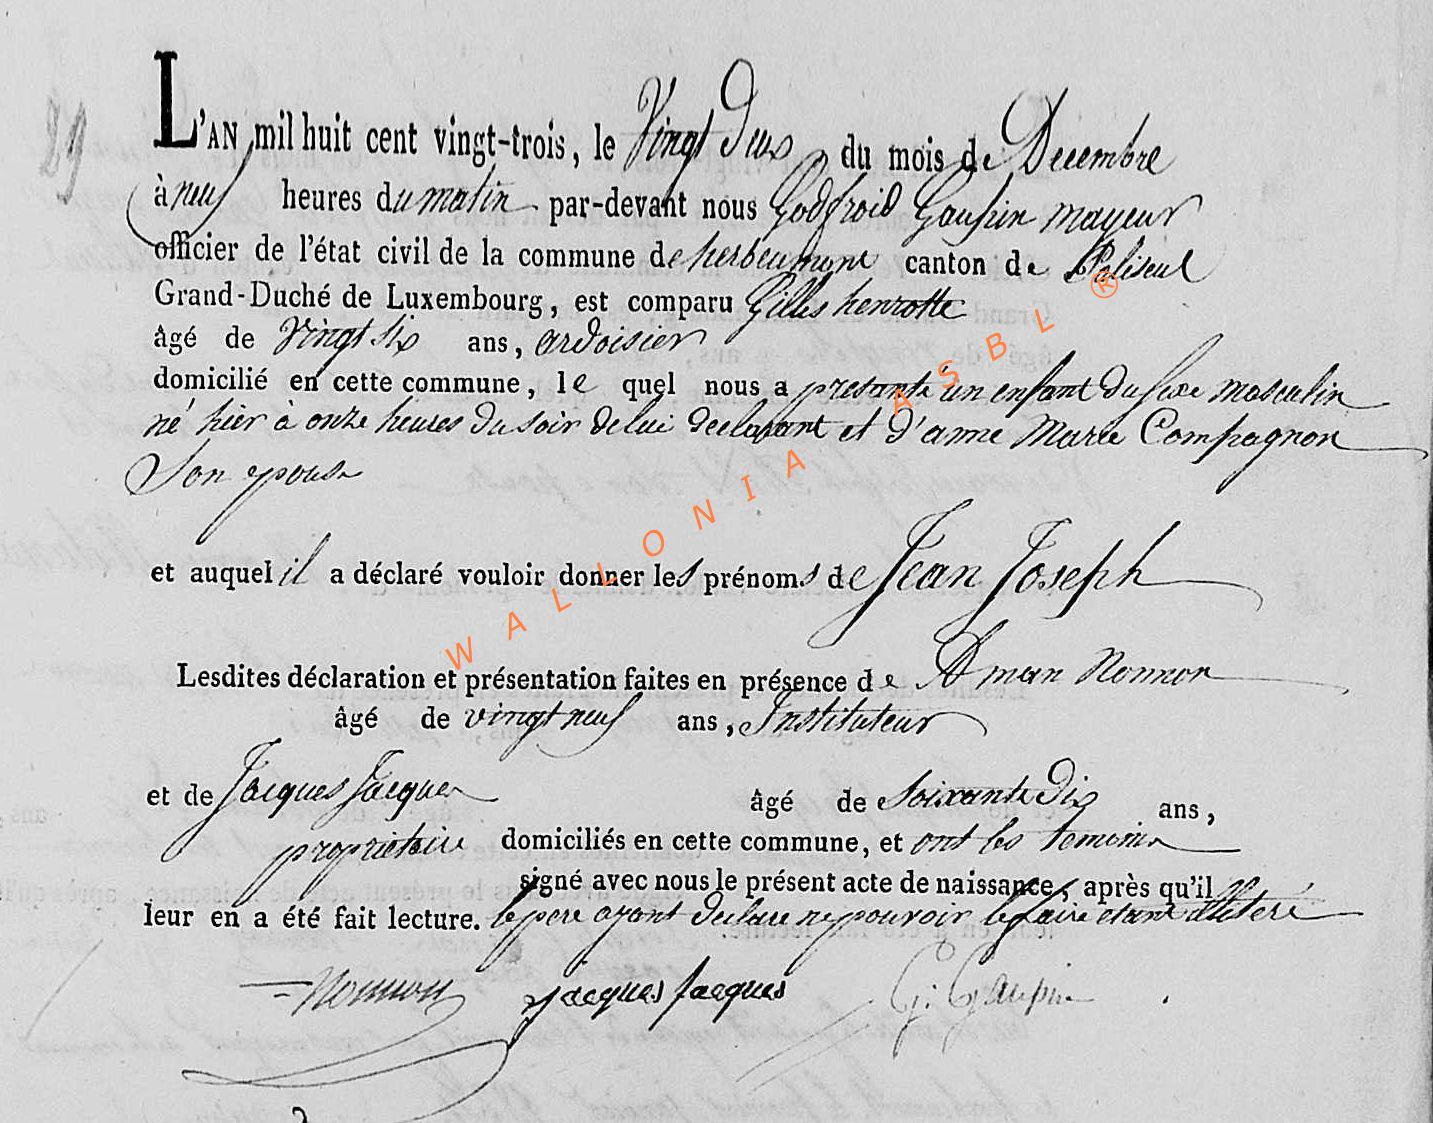 29
L'AN mil huit cent vingt-trois, le Vingt Deux du mois de Decembre
à neuf heures du matin par-devant nous Godfroid Gaupin mayeur
officier de l'état civil de la commune de herbeumont canton de Paliseul
Grand-Duché de Luxembourg, est comparu Gilles henrotte
âgé de Vingt six ans, ardoisier
domicilié en cette commune, le quel nous a presanté un enfant du sexe masculin
né hier à onze heures du soir de lui declarant et d'anne Marie Compagnon
Son epouse
et auquel il a déclaré vouloir donner les prénoms de Jean Joseph
Lesdites déclaration et présentation faites en présence de Aman Nonnon
âgé de vingt neuf ans, Instituteur
et de Jacques Jacques âgé de Soixante Dix ans,
propriétaire domiciliés en cette commune, et ont les temoins
signé avec nous le présent acte de naissance, après qu'il
leur en a été fait lecture. le pere ayant declare ne pouvoir le faire etant illiteré
Nonnon Jacques Jacques G. Gaupin
WALLONIA ASBL ®